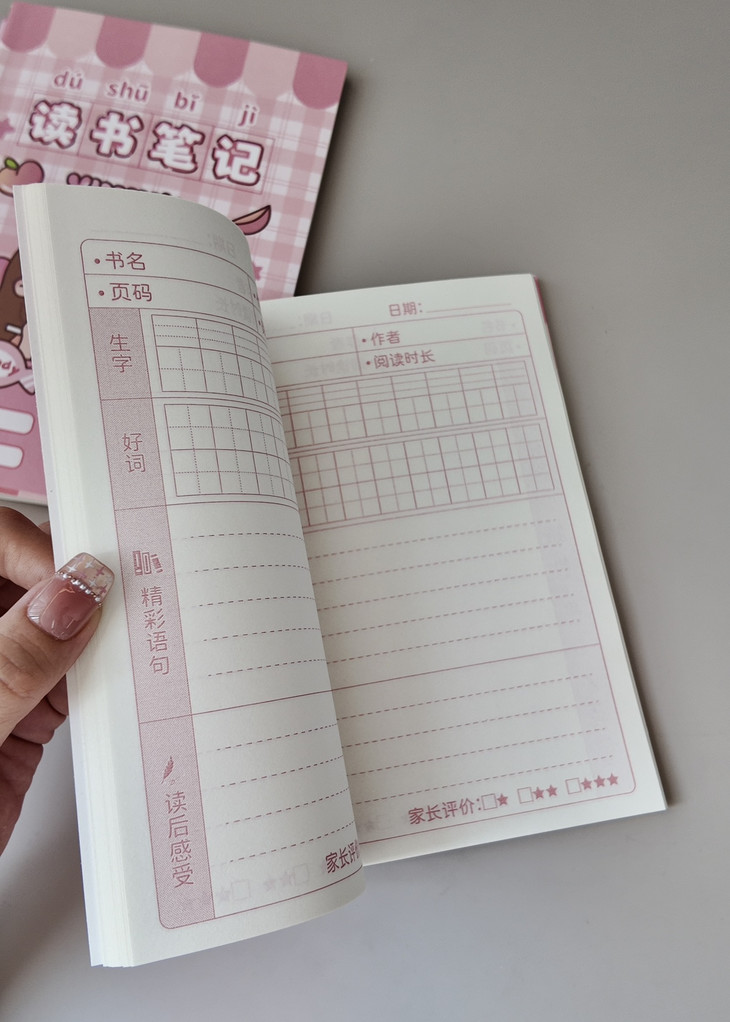 dú shū bǐ jì
读书笔记
•书名
•页码
生字
好词
精彩语句
读后感受
家长评
日期：
•作者
•阅读时长
家长评价：□★ □★★ □★★★